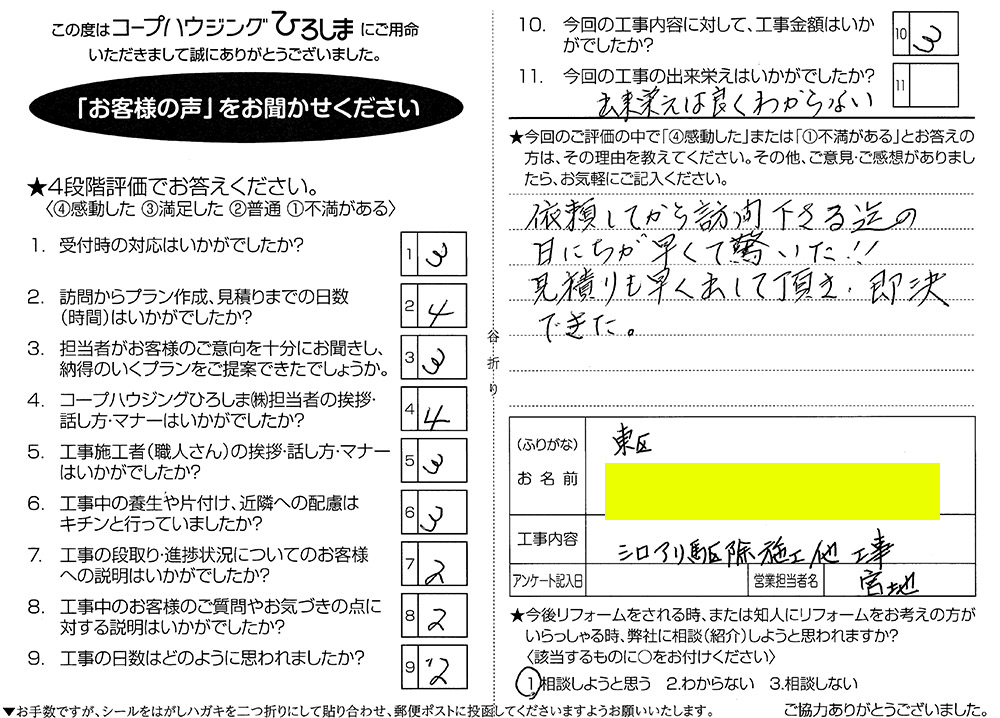 この度はコープハウジングひろしまにご用命
いただきまして誠にありがとうございました。
「お客様の声」をお聞かせください
★4段階評価でお答えください。
〈④感動した ③満足した ②普通 ①不満がある〉
1. 受付時の対応はいかがでしたか?
1 3
2. 訪問からプラン作成、見積りまでの日数
(時間)はいかがでしたか?
2 4
3. 担当者がお客様のご意向を十分にお聞きし、
納得のいくプランをご提案できたでしょうか。
3 3
4. コープハウジングひろしま㈱担当者の挨拶・
話し方・マナーはいかがでしたか?
4 4
5. 工事施工者(職人さん)の挨拶・話し方・マナー
はいかがでしたか?
5 3
6. 工事中の養生や片付け、近隣への配慮は
キチンと行っていましたか?
6 3
7. 工事の段取り・進捗状況についてのお客様
への説明はいかがでしたか?
7 2
8. 工事中のお客様のご質問やお気づきの点に
対する説明はいかがでしたか?
8 2
9. 工事の日数はどのように思われましたか?
9 2
▼お手数ですが、シールをはがしハガキを二つ折りにして貼り合わせ、郵便ポストに投函してくださいますようお願いいたします。
谷折り
10. 今回の工事内容に対して、工事金額はいか
がでしたか?
10 3
11. 今回の工事の出来栄えはいかがでしたか?
11
出来栄えは良くわからない
★今回のご評価の中で「④感動した」または「①不満がある」とお答えの
方は、その理由を教えてください。その他、ご意見・ご感想がありまし
たら、お気軽にご記入ください。
依頼してから訪問下さる迄の
日にちが早くて驚いた!!
見積りも早く出して頂き、即決
できた。
(ふりがな)
お名前
東区
工事内容
シロアリ駆除施工他工事
アンケート記入日
営業担当者名
宮地
★今後リフォームをされる時、または知人にリフォームをお考えの方が
いらっしゃる時、弊社に相談(紹介)しようと思われますか?
〈該当するものに○をお付けください〉
1.相談しようと思う 2.わからない 3.相談しない
ご協力ありがとうございました。